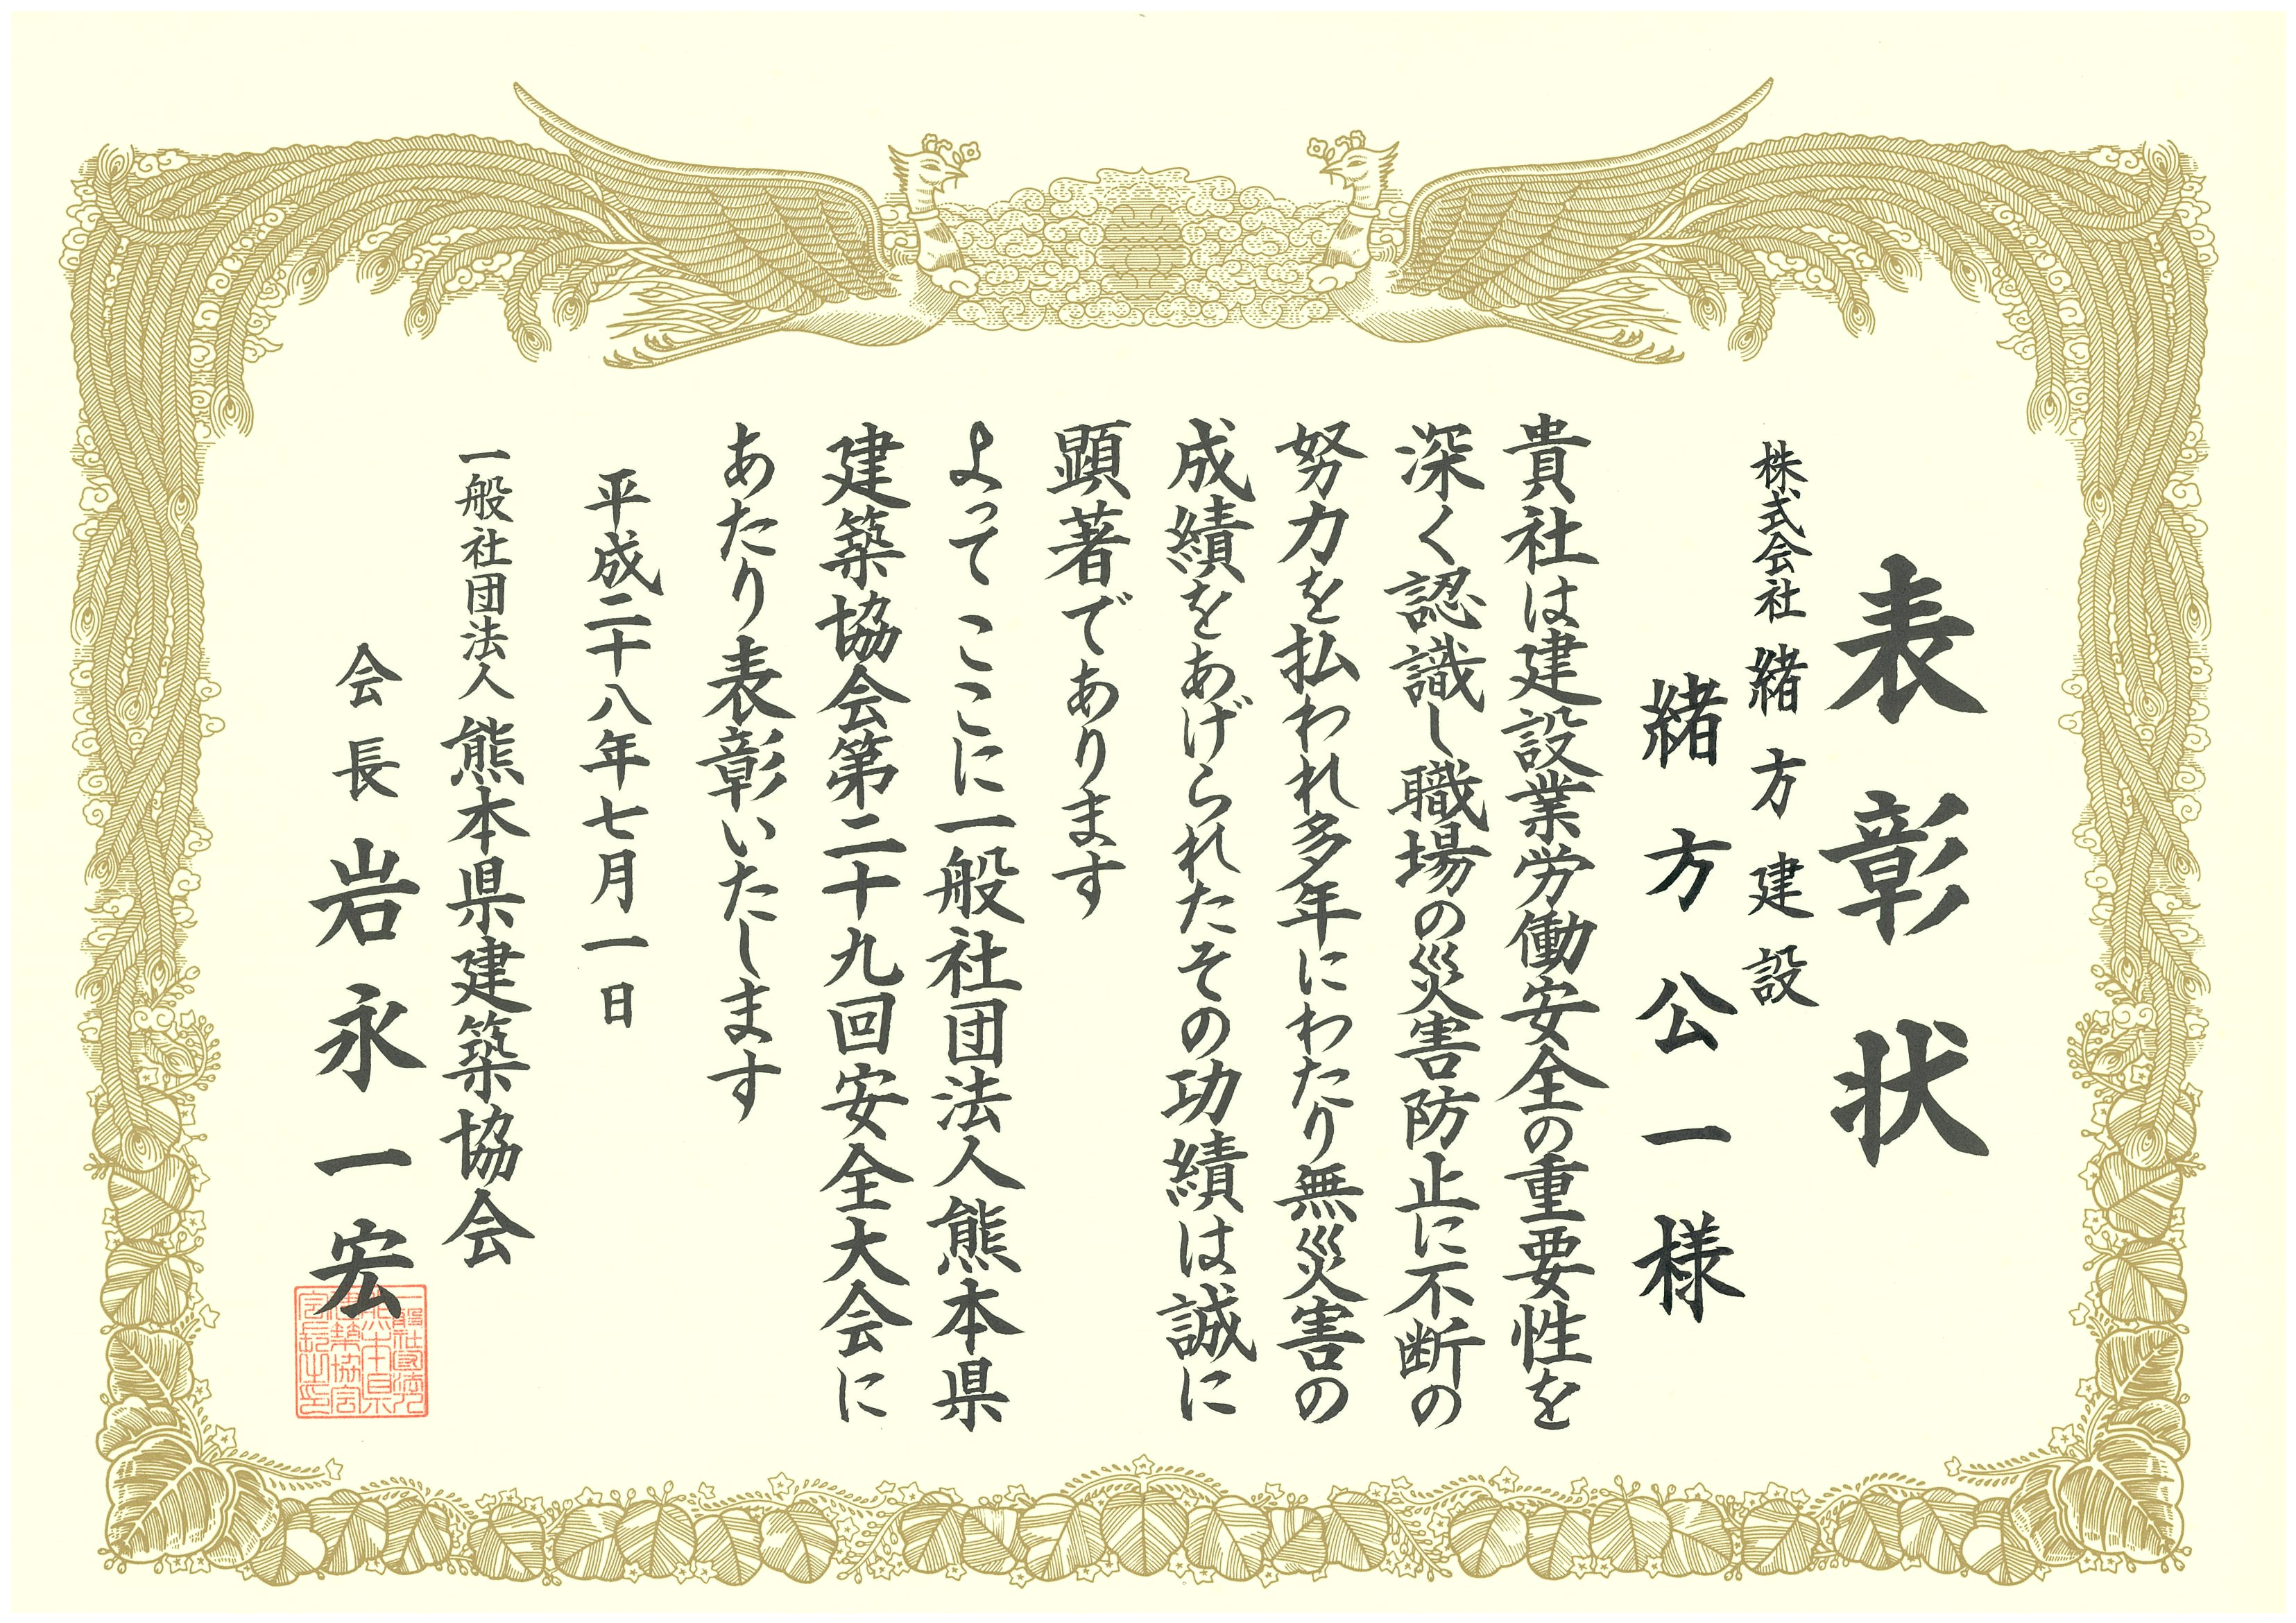 表彰状
株式会社 緒方建設
緒方公一様
貴社は建設業労働安全の重要性を
深く認識し職場の災害防止に不断の
努力を払われ多年にわたり無災害の
成績をあげられたその功績は誠に
顕著であります
よってここに一般社団法人熊本県
建築協会第二十九回安全大会に
あたり表彰いたします
平成二十八年七月一日
一般社団法人 熊本県建築協会
会長 岩永一宏
一般社団法人
熊本県
建築協会
会長之印